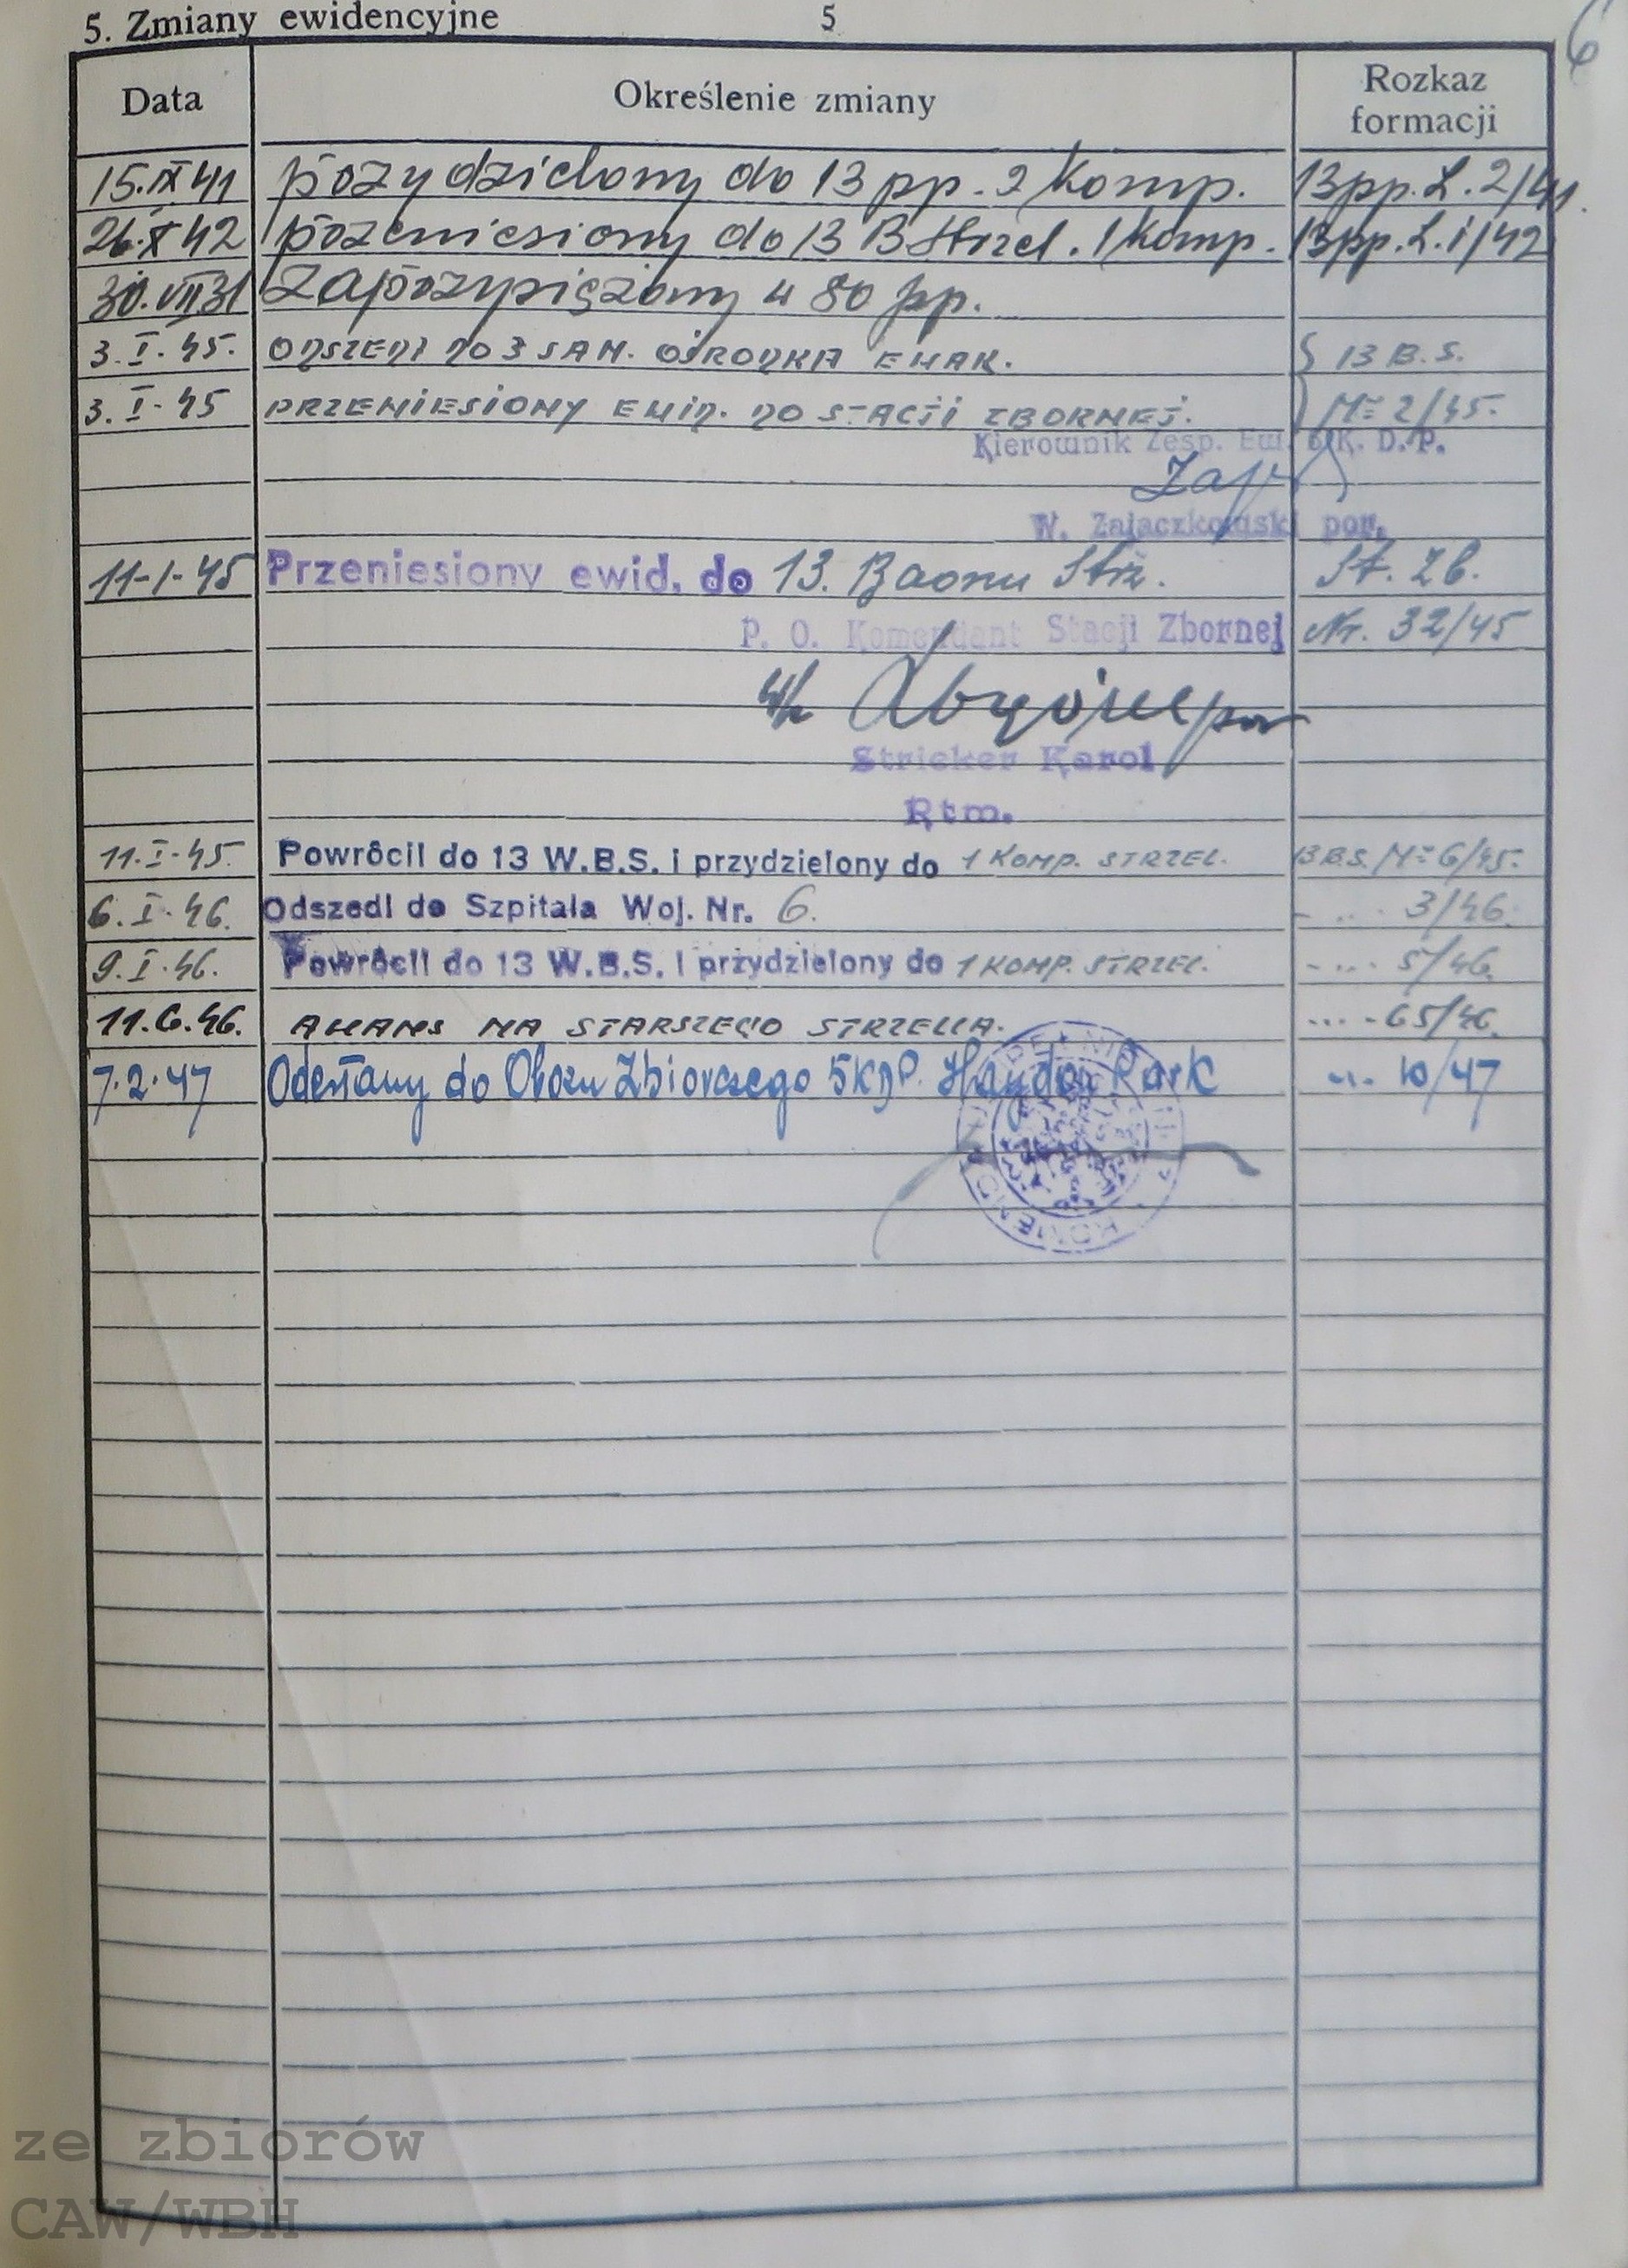 5. Zmiany ewidencyjne 5 6
Data Określenie zmiany Rozkaz formacji
15.IX 41 przydzielony do 13 pp. 2 Komp. 13 pp. L. 2/41.
26.X 42 przeniesiony do 13 B Strzel. 1 Komp. 13 pp. L. 1/42
30.VII 31 Zaprzysiężony w 80 pp.
3.I.45. ODSZEDŁ DO 3 SAN. OŚRODKA EWAK. 13 B.S.
3.I.45 PRZENIESIONY EWID. DO STACJI ZBORNEJ. N= 2/45.
Kierownik Zesp. Ew. 6 K. D. P.
W. Zajaczkowski por.
11-I-45 Przeniesiony ewid. do 13. Baonu Strz. St. Zb.
P. O. Komendant Stacji Zbornej Nr. 32/45
w/z por
Stricker Karol
Rtm.
11.I.45. Powrócił do 13 W.B.S. i przydzielony do 1 KOMP. STRZEL. 13 B.S. N= 6/45.
6.I.46. Odszedl do Szpitala Woj. Nr. 6. 3/46.
9.I.46. Powrócił do 13 W.B.S. i przydzielony do 1 KOMP. STRZEL. 5/46.
11.6.46. AWANS NA STARSZEGO STRZELCA. 65/46.
7.2.47 Odesłany do Obozu Zbiorczego 5 KDP. Haydon Park 10/47
ze zbiorów
CAW/WBH